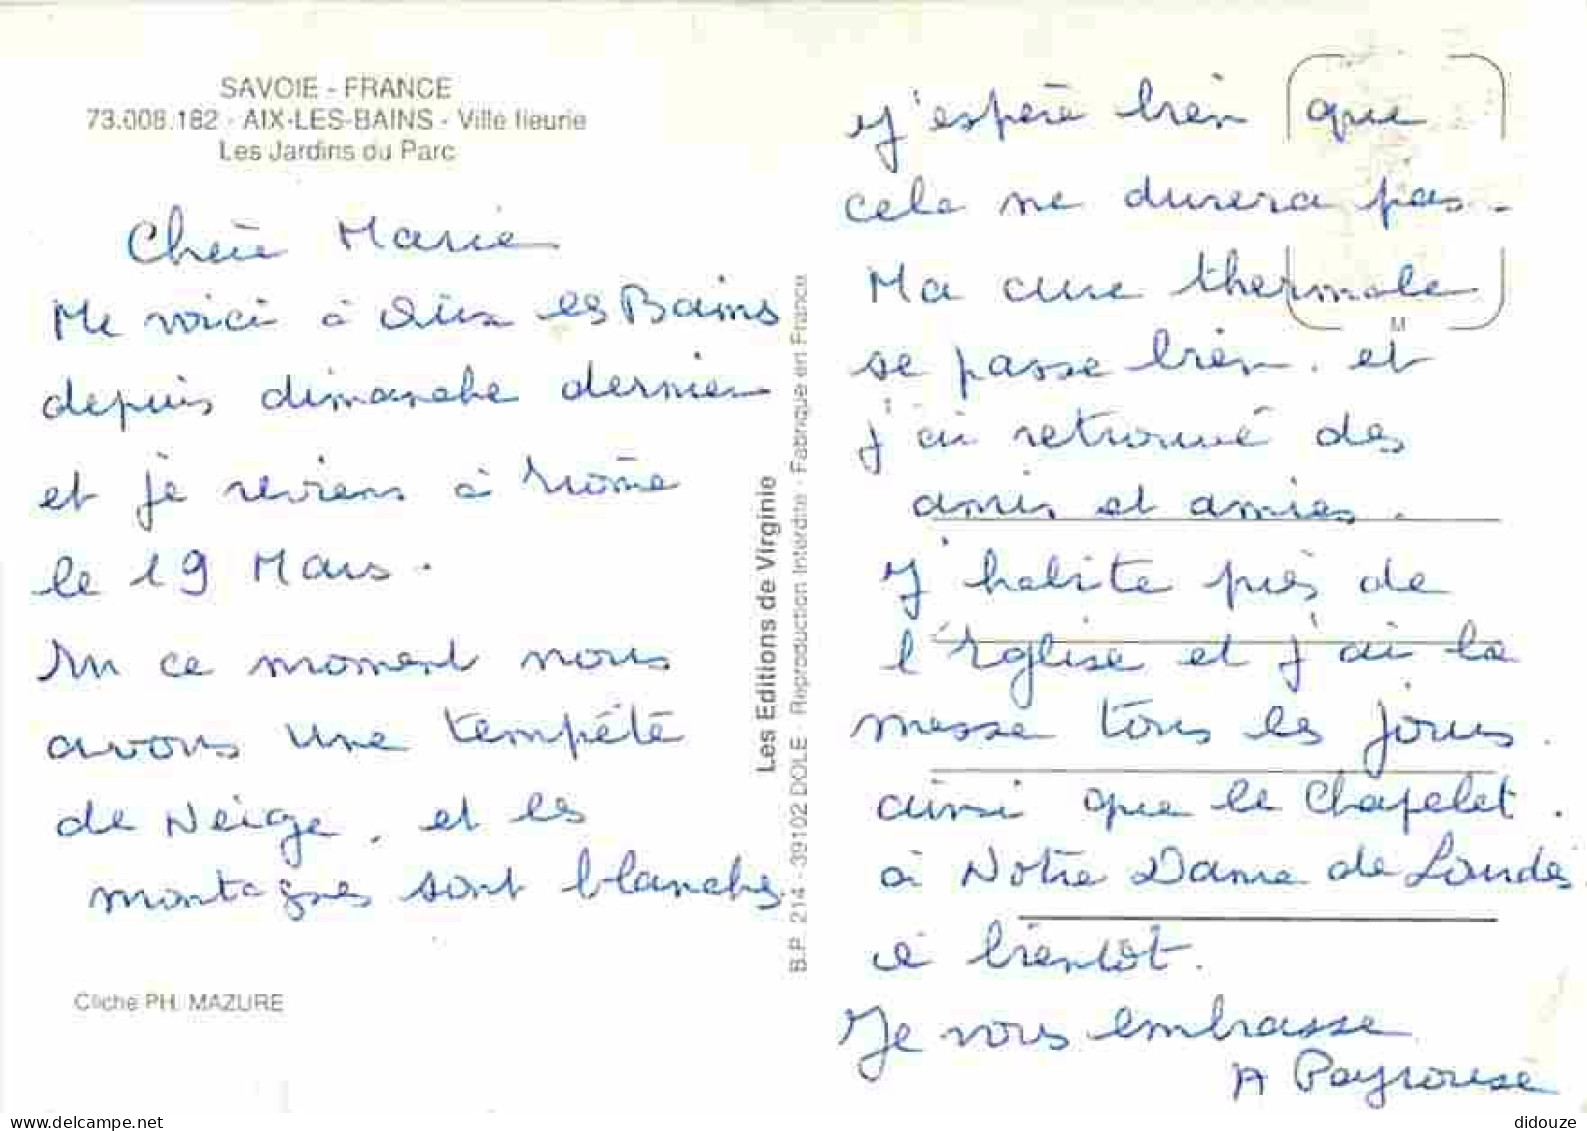 SAVOIE - FRANCE
73.008.182 - AIX-LES-BAINS - Ville fleurie
Les Jardins du Parc
Chère Marie
Me voici à Aix les Bains
depuis dimanche dernier
et je reviens à
le 19 Mars.
En ce moment nous
avons une tempête
de Neige, et les
montagnes sont blanches.
Cliché PH. MAZURE
Les Editions de Virginie
B.P. 214 - 39102 DOLE - Reproduction Interdite - Fabriqué en France
J'espère bien que
cela ne durera pas.
Ma cure thermale
se passe bien. et
j'ai retrouvé des
amis et amies.
J'habite près de
l'Eglise et j'ai la
messe tous les jours.
ainsi que le Chapelet.
à Notre Dame de Lourdes
à bientôt.
Je vous embrasse
A Peyrouse
M
didouze